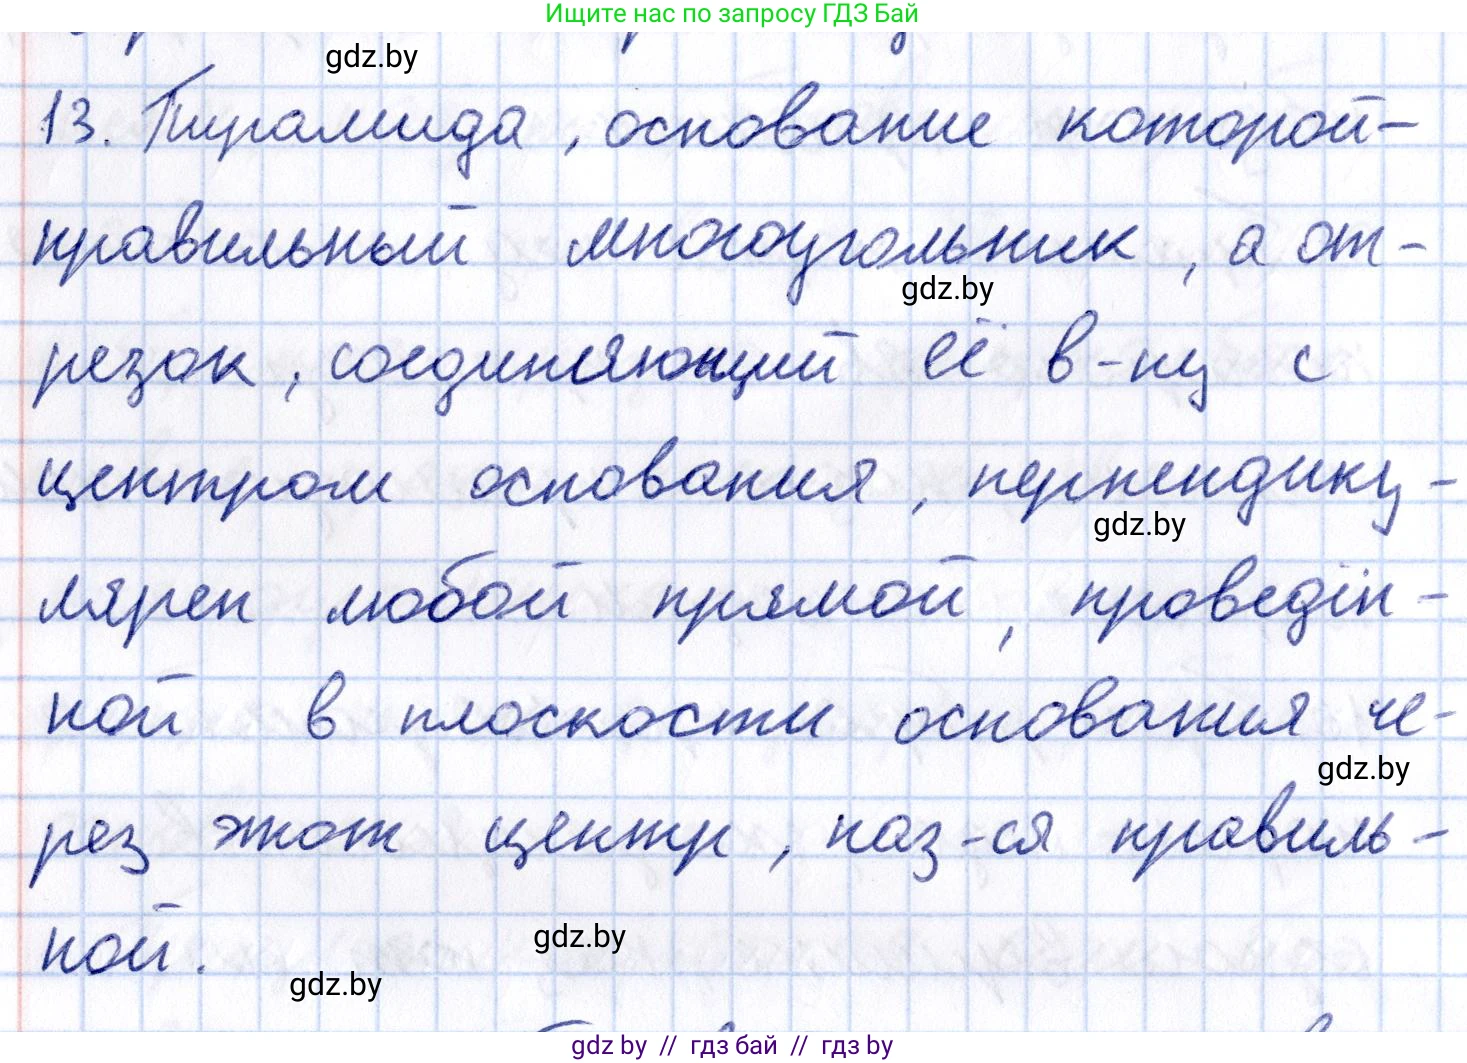 Ищите нас по запросу ГДЗ Бай
gdz.by
13. Пирамида, основание которой-
правильный многоугольник, а от-
gdz.by
резок, соединяющий её в-ну с
центром основания, перпендику-
gdz.by
лярен любой прямой, проведён-
ной в плоскости основания че-
gdz.by
рез этот центр, наз-ся правиль-
ной.
gdz.by
gdz.by
gdz by // гдз бай // гдз by